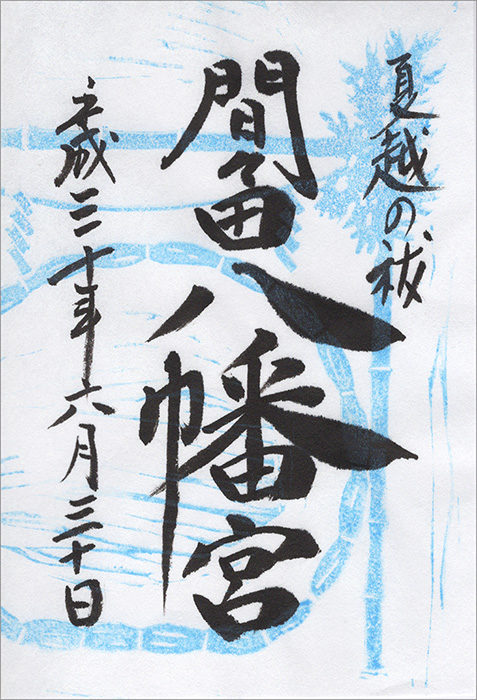 夏越の祓
間々田八幡宮
平成三十年六月三十日